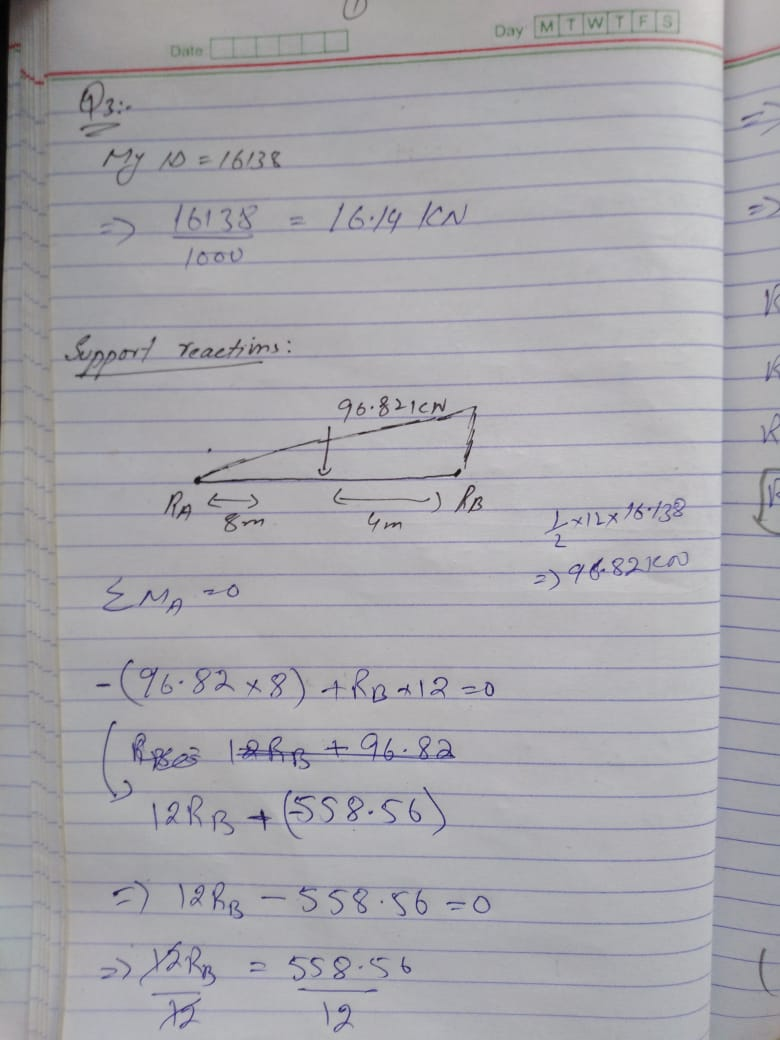 1
Date
Day M T W T F S
Q3:-
My ID = 16138
=> 16138 / 1000 = 16.14 KN
Support reactions:
96.82 KN
RA 8m 4m RB
1/2 × 12 × 16.138
=> 96.82 KN
ΣMA = 0
-(96.82 × 8) + RB × 12 = 0
12RB + 96.82
12RB + (-558.56)
=> 12RB - 558.56 = 0
=> 12RB / 12 = 558.56 / 12